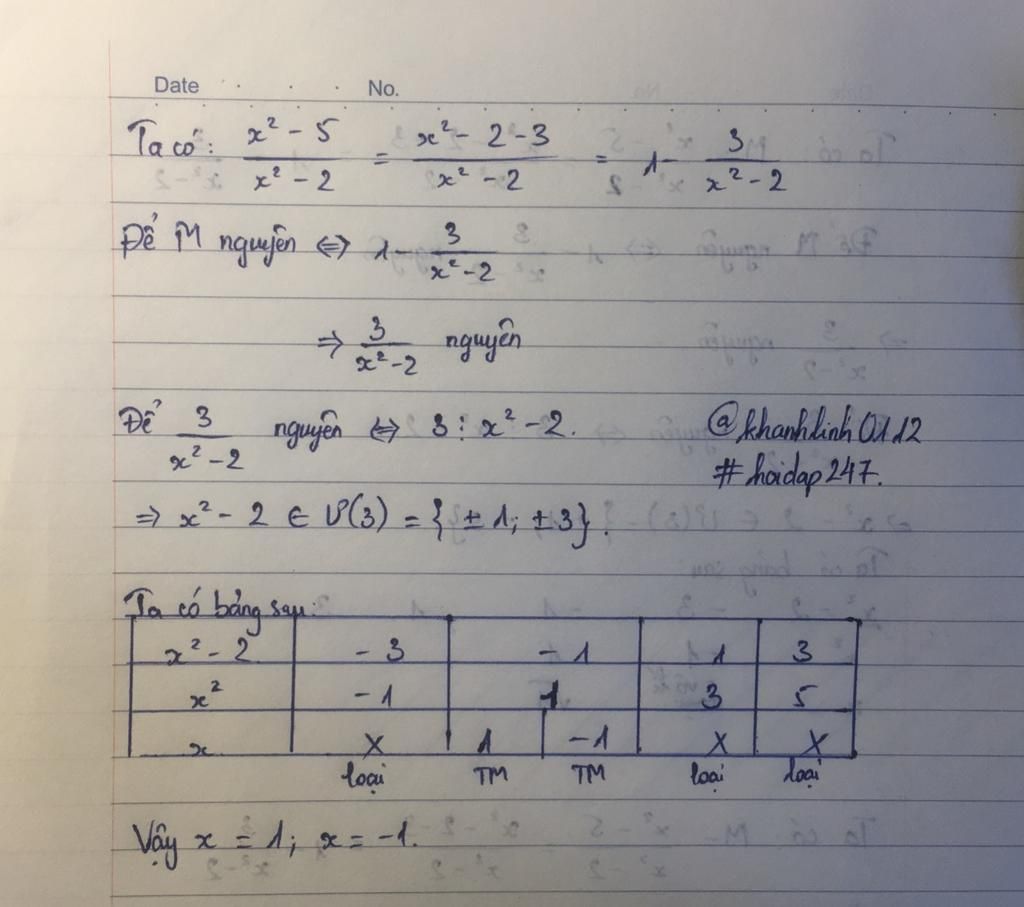 Date No.
Ta có: x² - 5 / x² - 2 = x² - 2 - 3 / x² - 2 = 1 - 3 / x² - 2
Để M nguyên ⇔ 1 3 / x² - 2
⇒ 3 / x² - 2 nguyên
Để 3 / x² - 2 nguyên ⇔ 3 ⋮ x² - 2.
@khanhlinh0112
#hoidap247.
⇒ x² - 2 ∈ Ư(3) = {± 1; ± 3}.
Ta có bảng sau
x² - 2 - 3 - 1 1 3
x² - 1 1 3 5
x X 1 - 1 X X
loại TM TM loại loại
Vậy x = 1; x = - 1.